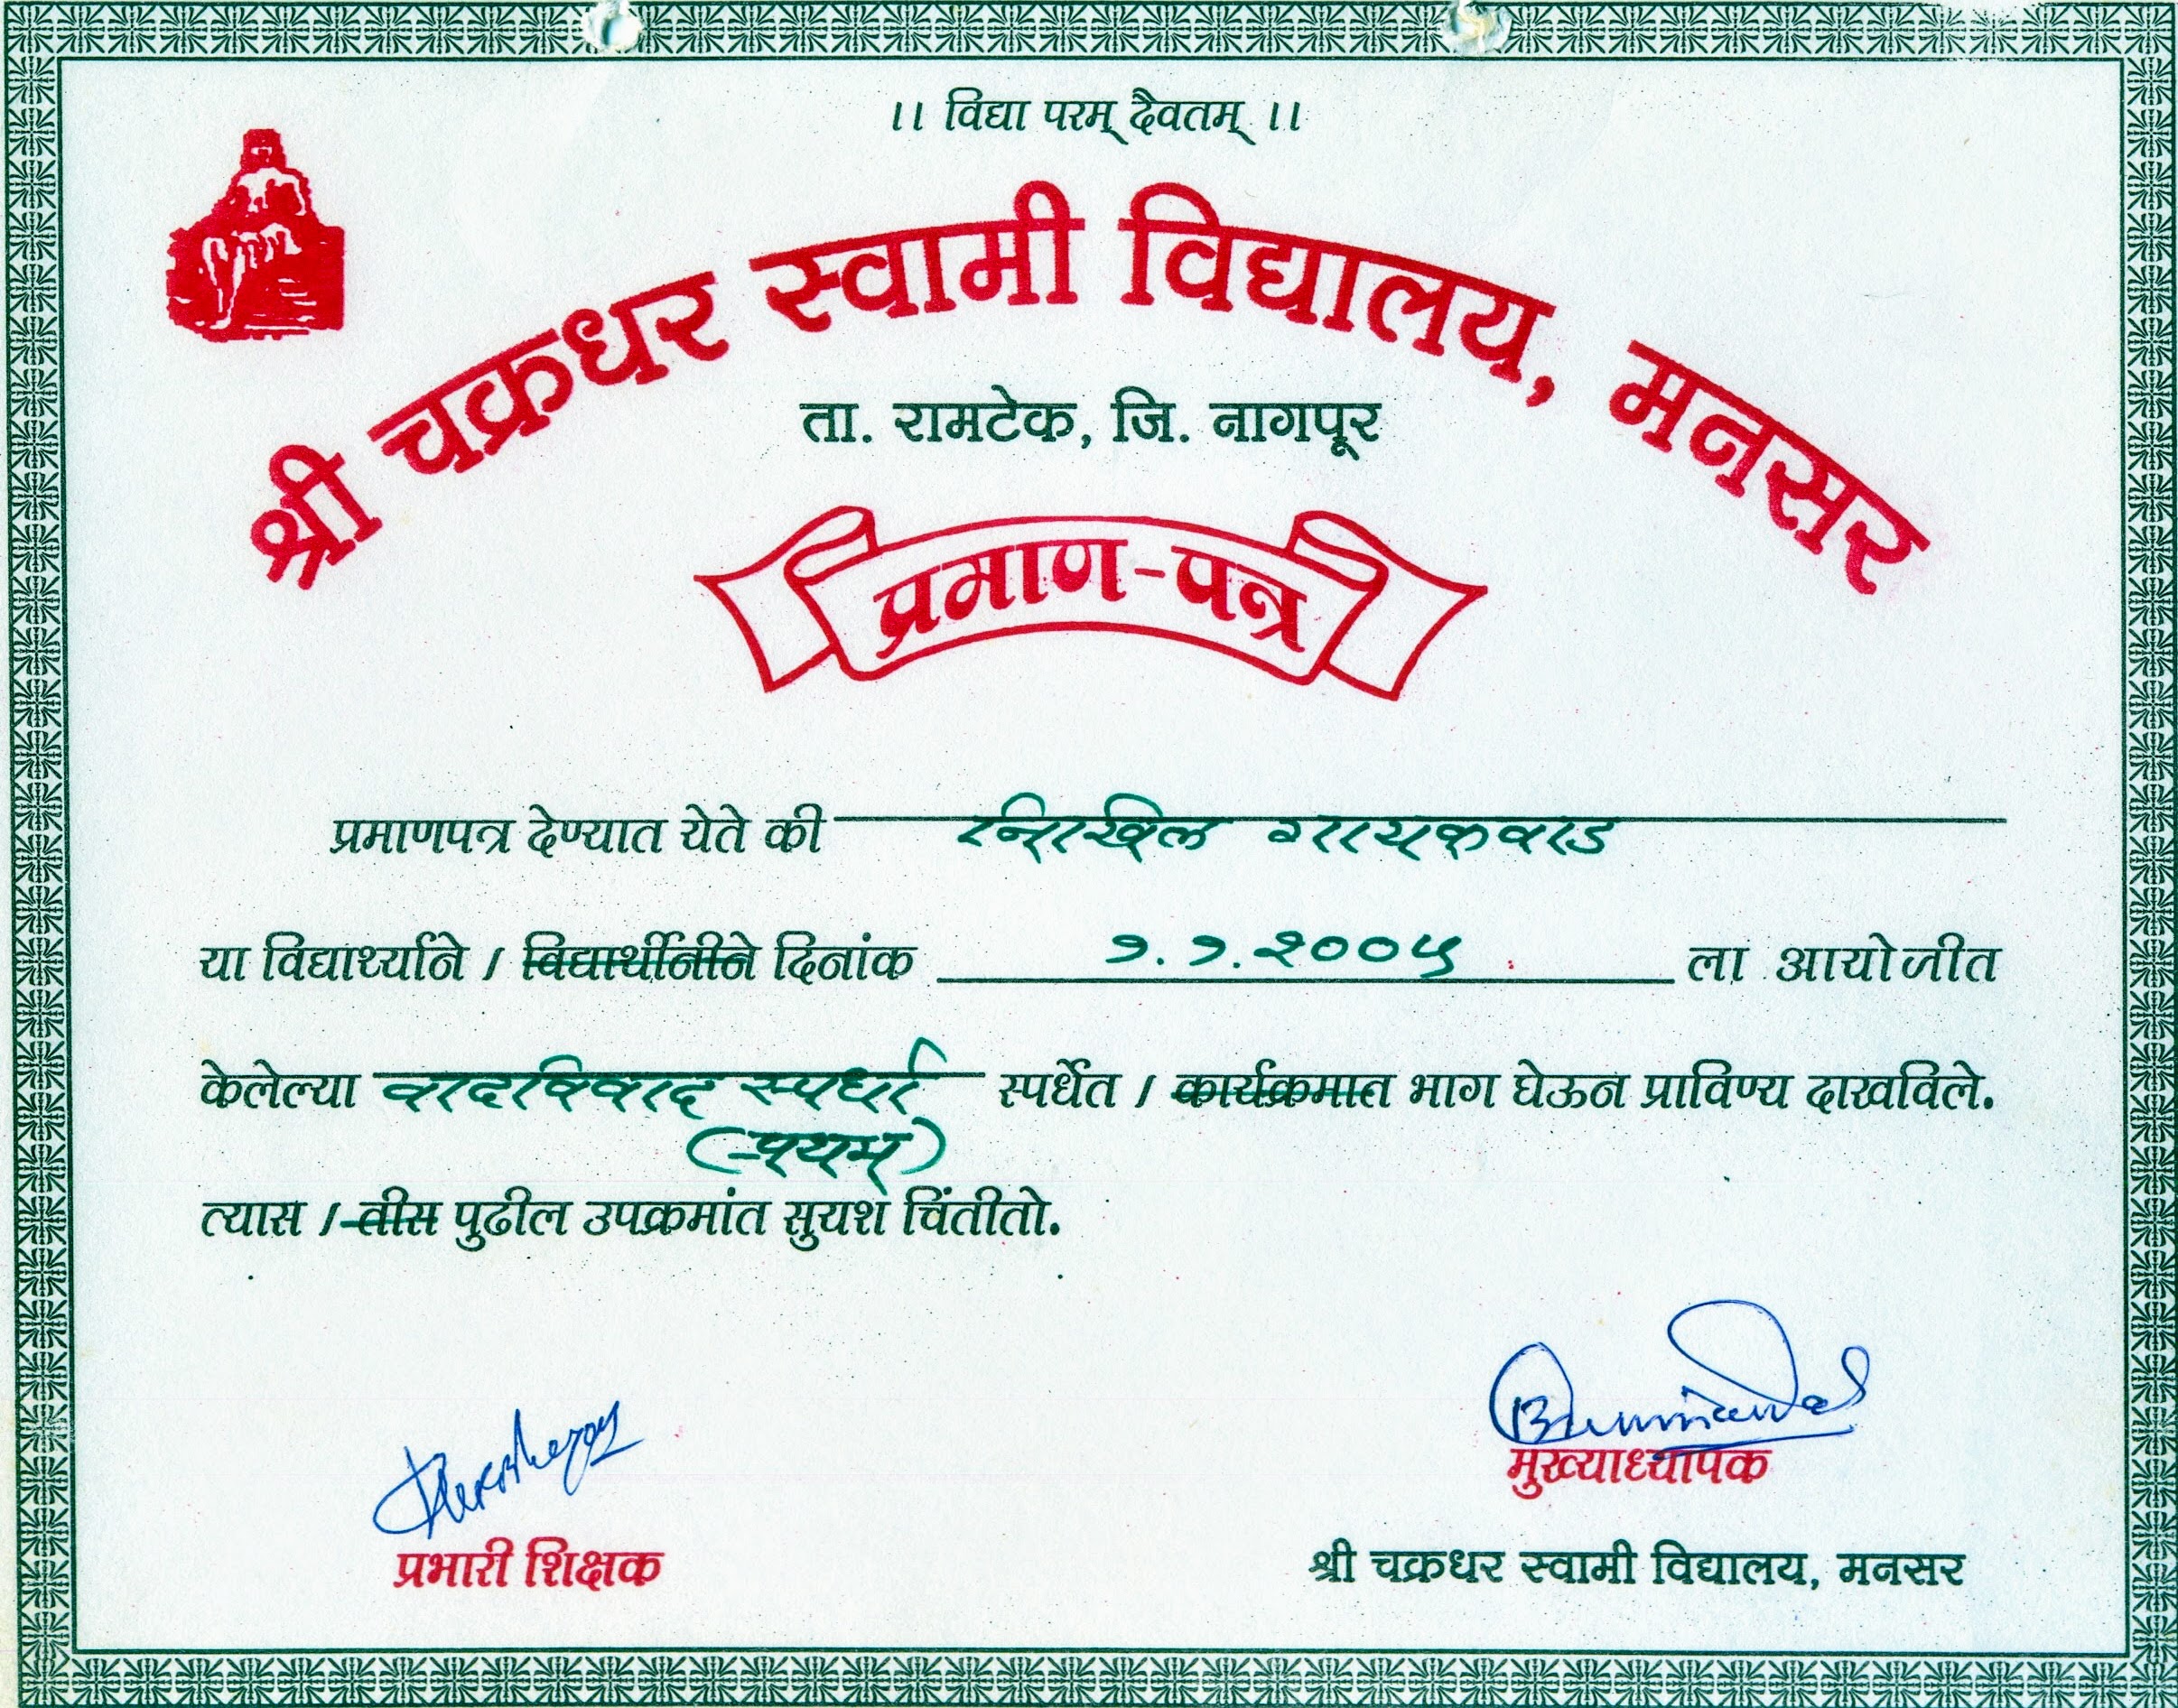 ।। विद्या परम् दैवतम् ।।
श्री चक्रधर स्वामी विद्यालय, मनसर
ता. रामटेक, जि. नागपूर
प्रमाण-पत्र
प्रमाणपत्र देण्यात येते की निखिल गायकवाड
या विद्यार्थ्याने / विद्यार्थीनीने दिनांक १.१.२००५ ला आयोजीत
केलेल्या वादविवाद स्पर्धा स्पर्धेत / कार्यक्रमात भाग घेऊन प्राविण्य दाखविले.
(प्रथम)
त्यास / तीस पुढील उपक्रमांत सुयश चिंतीतो.
मुख्याध्यापक
प्रभारी शिक्षक
श्री चक्रधर स्वामी विद्यालय, मनसर